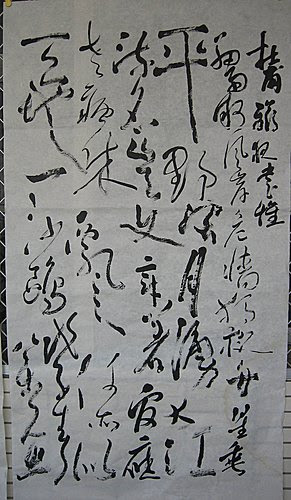 杜甫旅夜書懷
細草微風岸危檣獨夜舟星垂
平野闊月湧大江
流名豈文章著官應
老病休飄飄何所似
天地一沙鷗